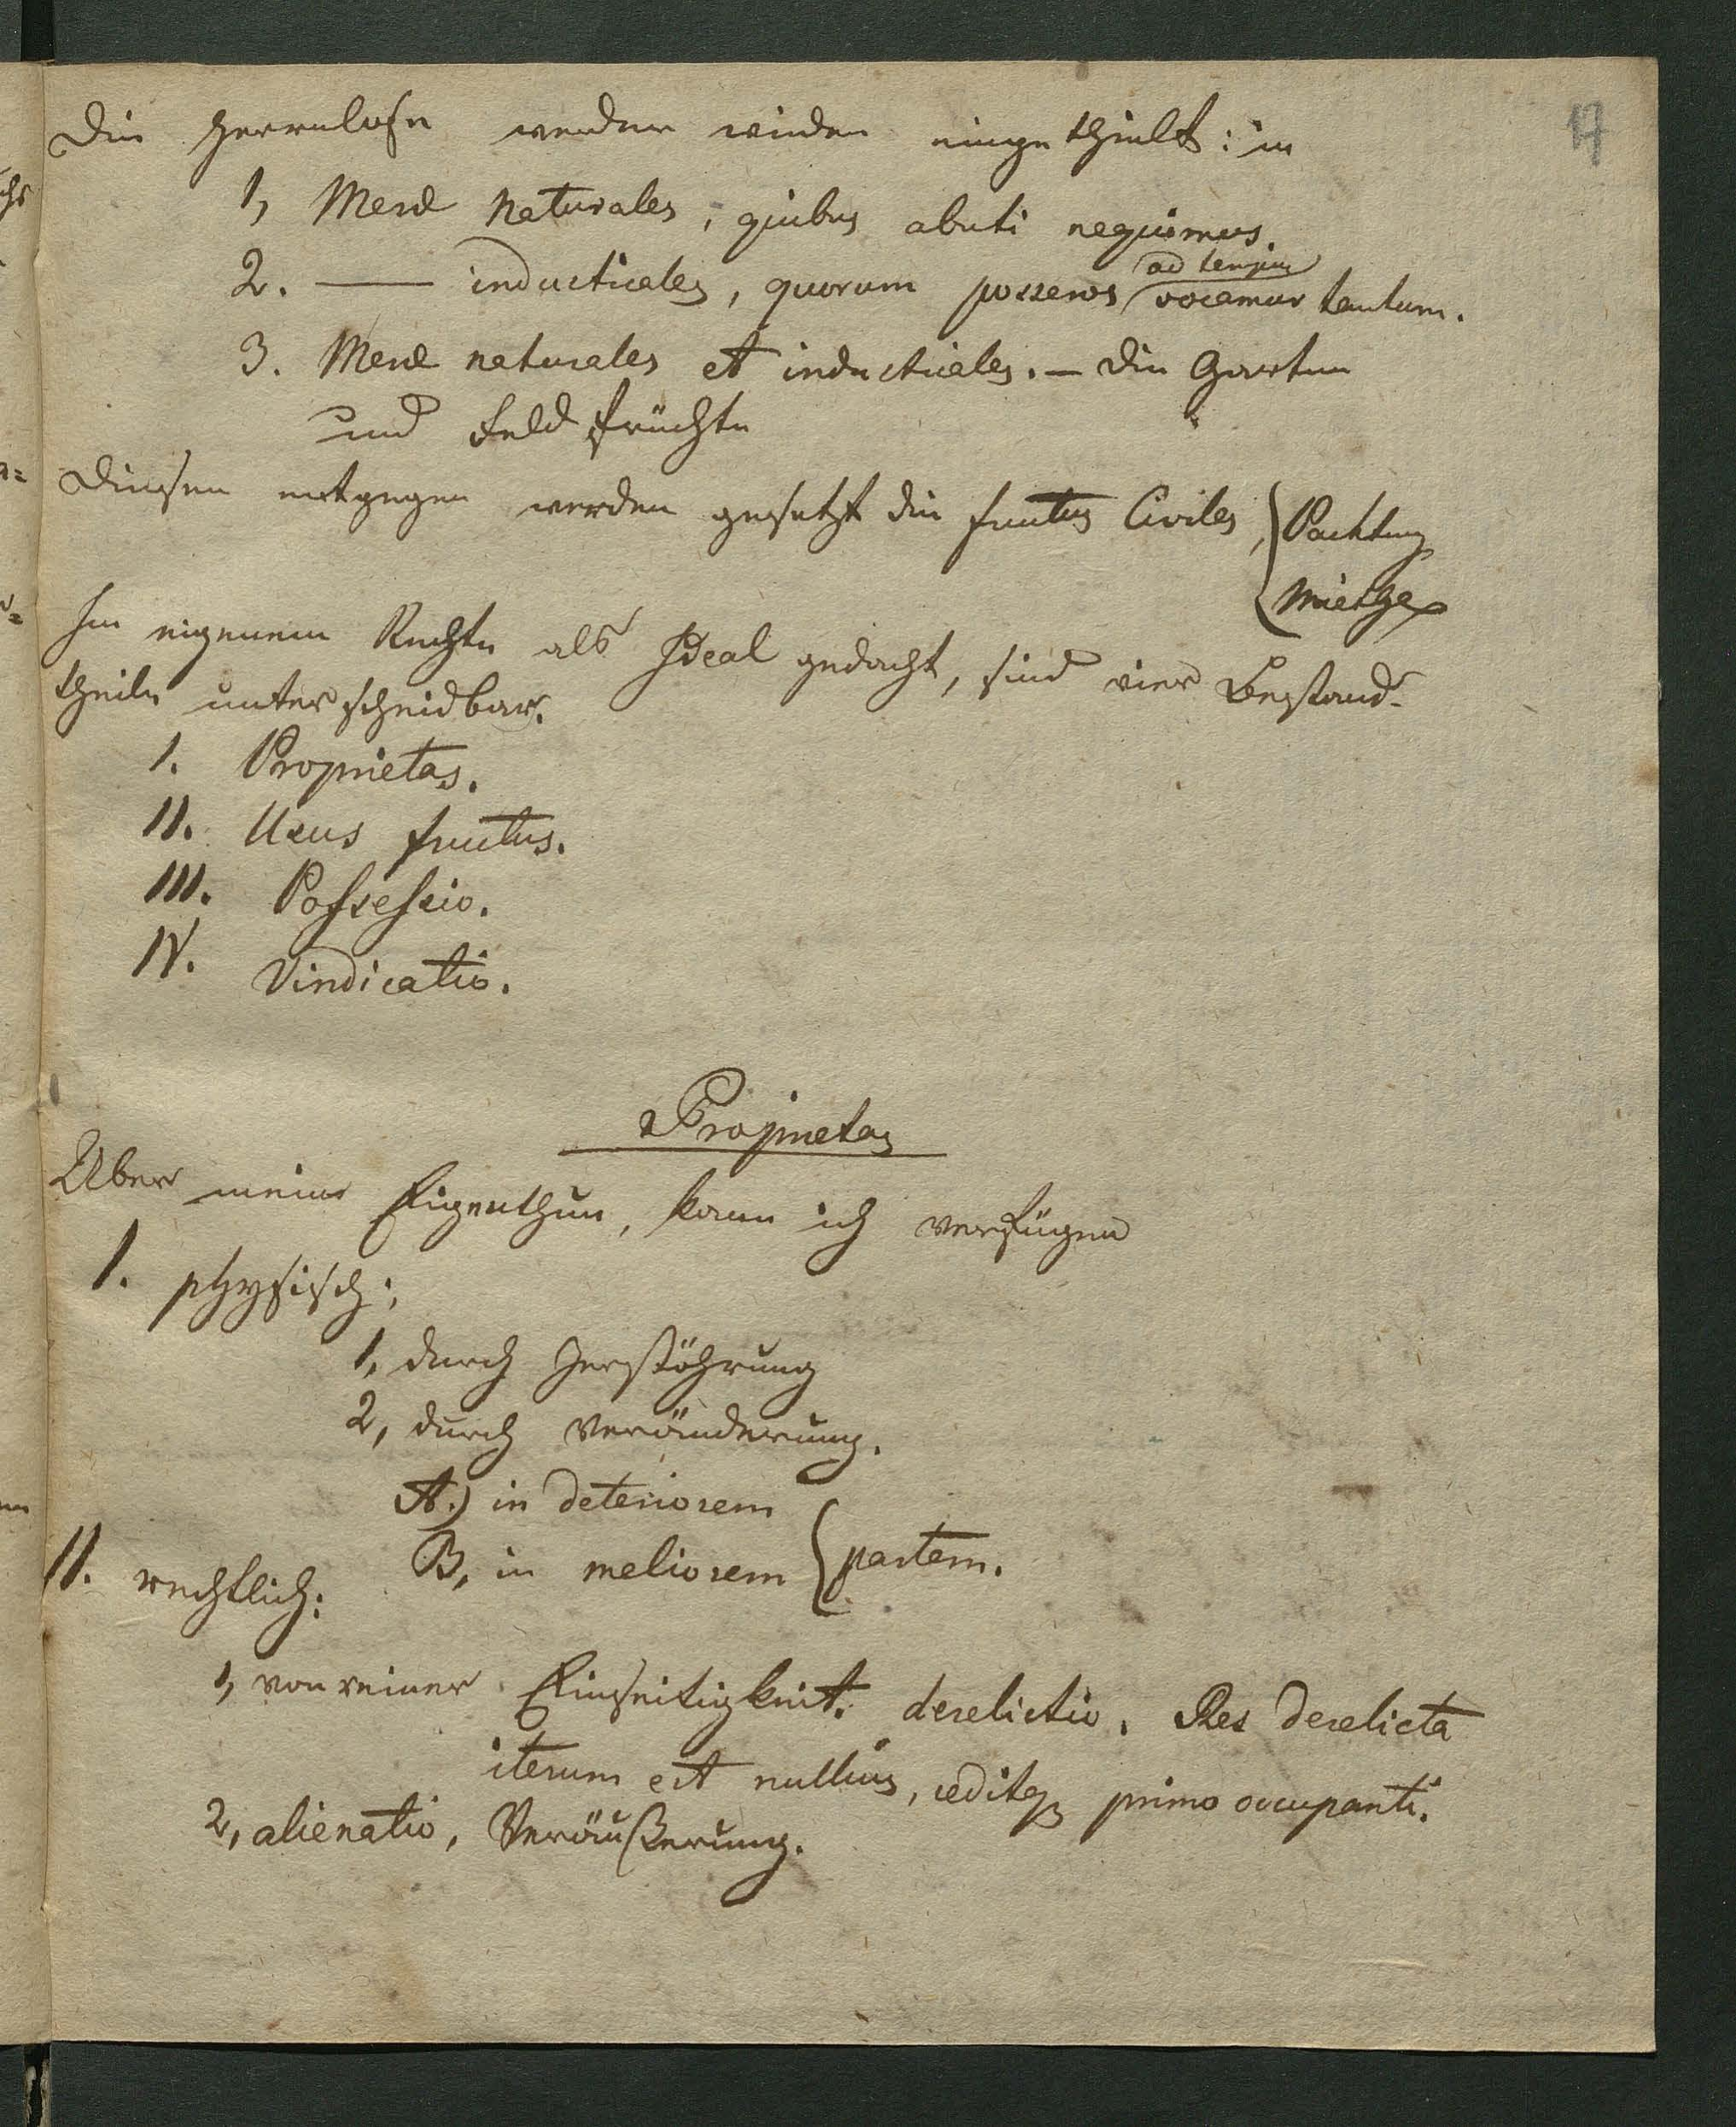 17
Die herrnlose werden wieder eingetheilt: in
1, Meræ Naturales, quibus abuti nequimus.
2. —— industriales, quorum posseros ad tempus vocamur tantum.
3. Meræ naturales et industriales. – die Garten
und Feldfrüchte
Diesen entgegen werden gesetzt die fructus Civiles, Pachtung
Miethe
Im eigenem Rechte als Ideal gedacht, sind vier Bestand-
theile unterscheidbar.
I. Proprietas.
II. Usus fructus.
III. Possessio.
IV. Vindicatio.
Proprietas
Über meine Eigenthum, kann ich verfügen
I. physisch;
1, durch Zerstöhrung
2, durch Veränderung.
A.) in deteriorem
B, in meliorem partem.
II. rechtlich:
1, von reiner Einseitigkeit. derelictio. Res derelicta
iterum est nullius, ceditq primo occupanti.
2, alienatio, Veräußerung.